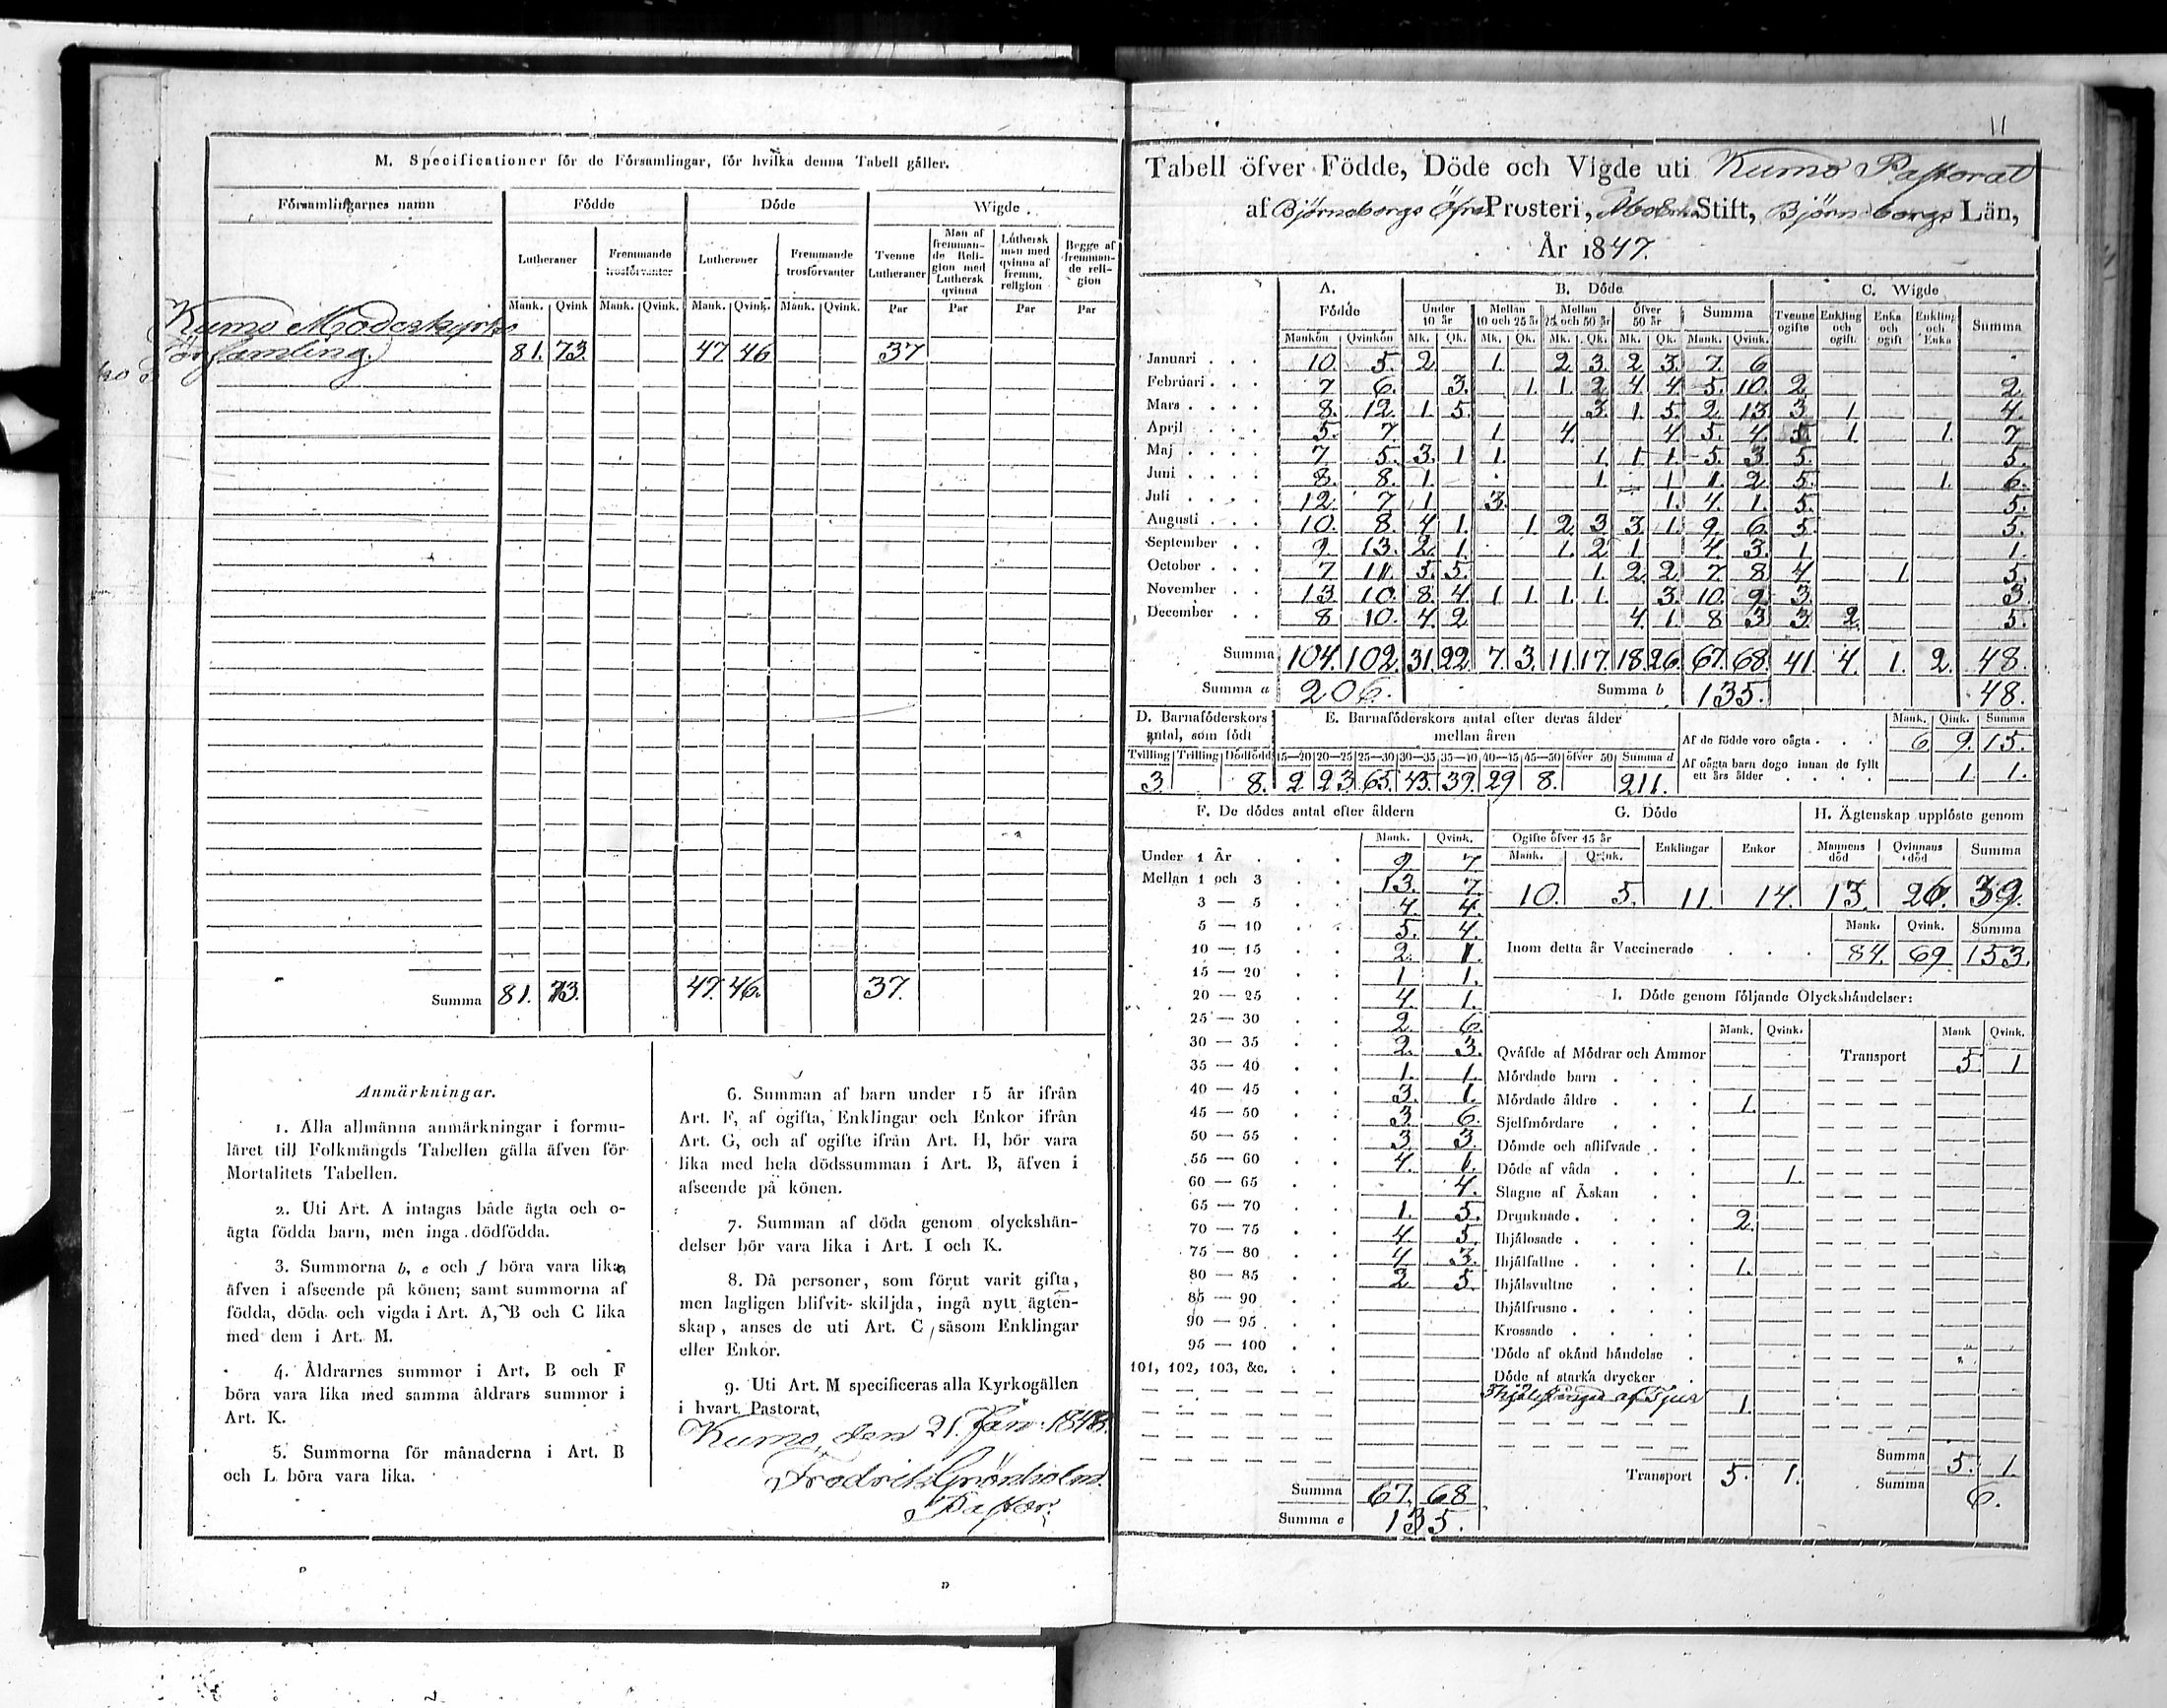 M. Specificationer för de Församlingar, för hvilka denna Tabell gäller.
Församlingarnes namn Födde Döde Wigde
Lutheraner Fremmande trosförvanter Lutheraner Fremmande trosförvanter Tvenne Lutheraner Man af fremmande Religion med Luthersk qvinna Luthersk man med qvinna af fremm. religion Begge af fremmande religion
Mank. Qvink Mank. Qvink. Mank. Qvink. Mank. Qvink. Par Par Par Par
Kumo Moderkyrko
församling. 81. 73. 47 46 37
Summa 81. 73. 47. 46. 37.
Anmärkningar.
1. Alla allmänna anmärkningar i formu-
läret till Folkmängds Tabellen gälla äfven för
Mortalitets Tabellen.
2. Uti Art. A intagas både ägta och o-
ägta födda barn, men inga dödfödda.
3. Summorna b, c och f böra vara lika
äfven i afseende på könen; samt summorna af
födda, döda och vigda i Art. A, B och C lika
med dem i Art. M.
4. Åldrarnes summor i Art. B och F
böra vara lika med samma åldrars summor i
Art. K.
5. Summorna för månaderna i Art. B
och L böra vara lika.
6. Summan af barn under 15 år ifrån
Art. F, af ogifta, Enklingar och Enkor ifrån
Art. G, och af ogifte ifrån Art. H, bör vara
lika med hela dödssumman i Art. B, äfven i
afseende på könen.
7. Summan af döda genom olyckshän-
delser bör vara lika i Art. I och K.
8. Då personer, som förut varit gifta,
men lagligen blifvit skiljda, ingå nytt ägten-
skap, anses de uti Art. C, såsom Enklingar
eller Enkor.
9. Uti Art. M specificeras alla Kyrkogällen
i hvart Pastorat.
Kumo, den 21. Jan. 1848.
Fredrik Grönholm.
Pastor.
11
Tabell öfver Födde, Döde och Vigde uti Kumo Pastorat
af Björneborgs Öfre Prosteri, Åbo Stift, Björneborgs Län,
År 1847.
A. Födde B. Döde C. Wigde
Under 10 år Mellan 10 och 25 år Mellan 25 och 50 år Öfver 50 år Summa Tvenne ogifte Enkling och ogift. Enka och ogift Enkling och Enka Summa
Mankön Qvinkön Mk. Qk. Mk. Qk. Mk. Qk. Mk. Qk. Mank. Qvink.
Januari 10. 5. 2 1. 2 3 2 3. 7. 6
Februari 7 6. 3. 1. 1. 2 4 4 5. 10. 2 2
Mars 8. 12 1. 5. 3. 1. 5. 2 13. 3 1 4.
April 5. 7. 1 4. 4 5. 4. 5. 1. 1. 7
Maj 7 5. 3. 1 1. 1. 1. 1. 5. 3. 5. 5.
Juni 8. 8. 1. 1. 1 1. 2. 5. 1. 6.
Juli 12 7 1 3. 1. 4. 1. 5. 5.
Augusti 10. 8. 4 1. 1 2 3 3. 1. 9. 6 5. 5.
September 9. 13. 2 1. 1. 2 1. 4. 3. 1 1.
October 7 11. 5. 5. 1. 2 2 7. 8 4 1. 5.
November 13 10. 8. 4 1 1. 1. 1. 3. 10. 9. 3. 3
December 8 10. 4. 2 4. 1 8 3 3. 2 5.
Summa 104. 102. 31. 22 7. 3. 11. 17. 18. 26. 67. 68. 41. 4. 1. 2. 48.
Summa a 206. Summa b 135. 48.
D. Barnaföderskors antal, som födt
Tvilling Trilling Dödfödd
3. 8.
E. Barnaföderskors antal efter deras ålder
mellan åren
15—20 20—25 25—30 30—35 35—40 40—45 45—50 öfver 50 Summa d
2 23. 65. 45. 39. 29 8. 211.
Mank. Qink. Summa
Af de födde voro oägta 6 9. 15.
Af oägta barn dogo innan de fyllt ett års ålder 1. 1.
F. De dödes antal efter åldern
Mank. Qvink.
Under 1 År 9. 7.
Mellan 1 och 3 13. 7.
3 — 5 4. 4.
5 — 10 5. 4.
10 — 15 2. 1.
15 — 20 1 1.
20 — 25 4. 1.
25 — 30 2 6.
30 — 35 2. 3.
35 — 40 1. 1.
40 — 45 3. 1.
45 — 50 3 6.
50 — 55 3 3.
55 — 60 4. 1.
60 — 65 4.
65 — 70 1. 5.
70 — 75 4. 5.
75 — 80 4 3.
80 — 85 2 5.
85 — 90
90 — 95
95 — 100
101, 102, 103, &c.
Summa 67. 68
Summa c 135.
G. Döde
Ogifte öfver 15 år Enklingar Enkor
Mank. Qvink.
10. 5. 11. 14.
H. Ägtenskap upplöste genom
Mannens död Qvinnans död Summa
13. 26. 39.
Mank. Qvink. Summa
Inom detta år Vaccinerade 84. 69 153.
I. Döde genom följande Olyckshändelser:
Mank. Qvink. Mank Qvink.
Qväfde af Mödrar och Ammor Transport 5 1
Mördade barn
Mördade äldre 1.
Sjelfmördare
Dömde och aflifvade
Döde af våda 1.
Slagne af Åskan
Drunknade 2.
Ihjälosade
Ihjälfallne 1.
Ihjälsvultne
Ihjälfrusne
Krossade
Döde af okänd händelse
Döde af starka drycker
Ihjälstångad af Tjur 1.
Transport 5. 1.
Summa 5. 1.
Summa 6.